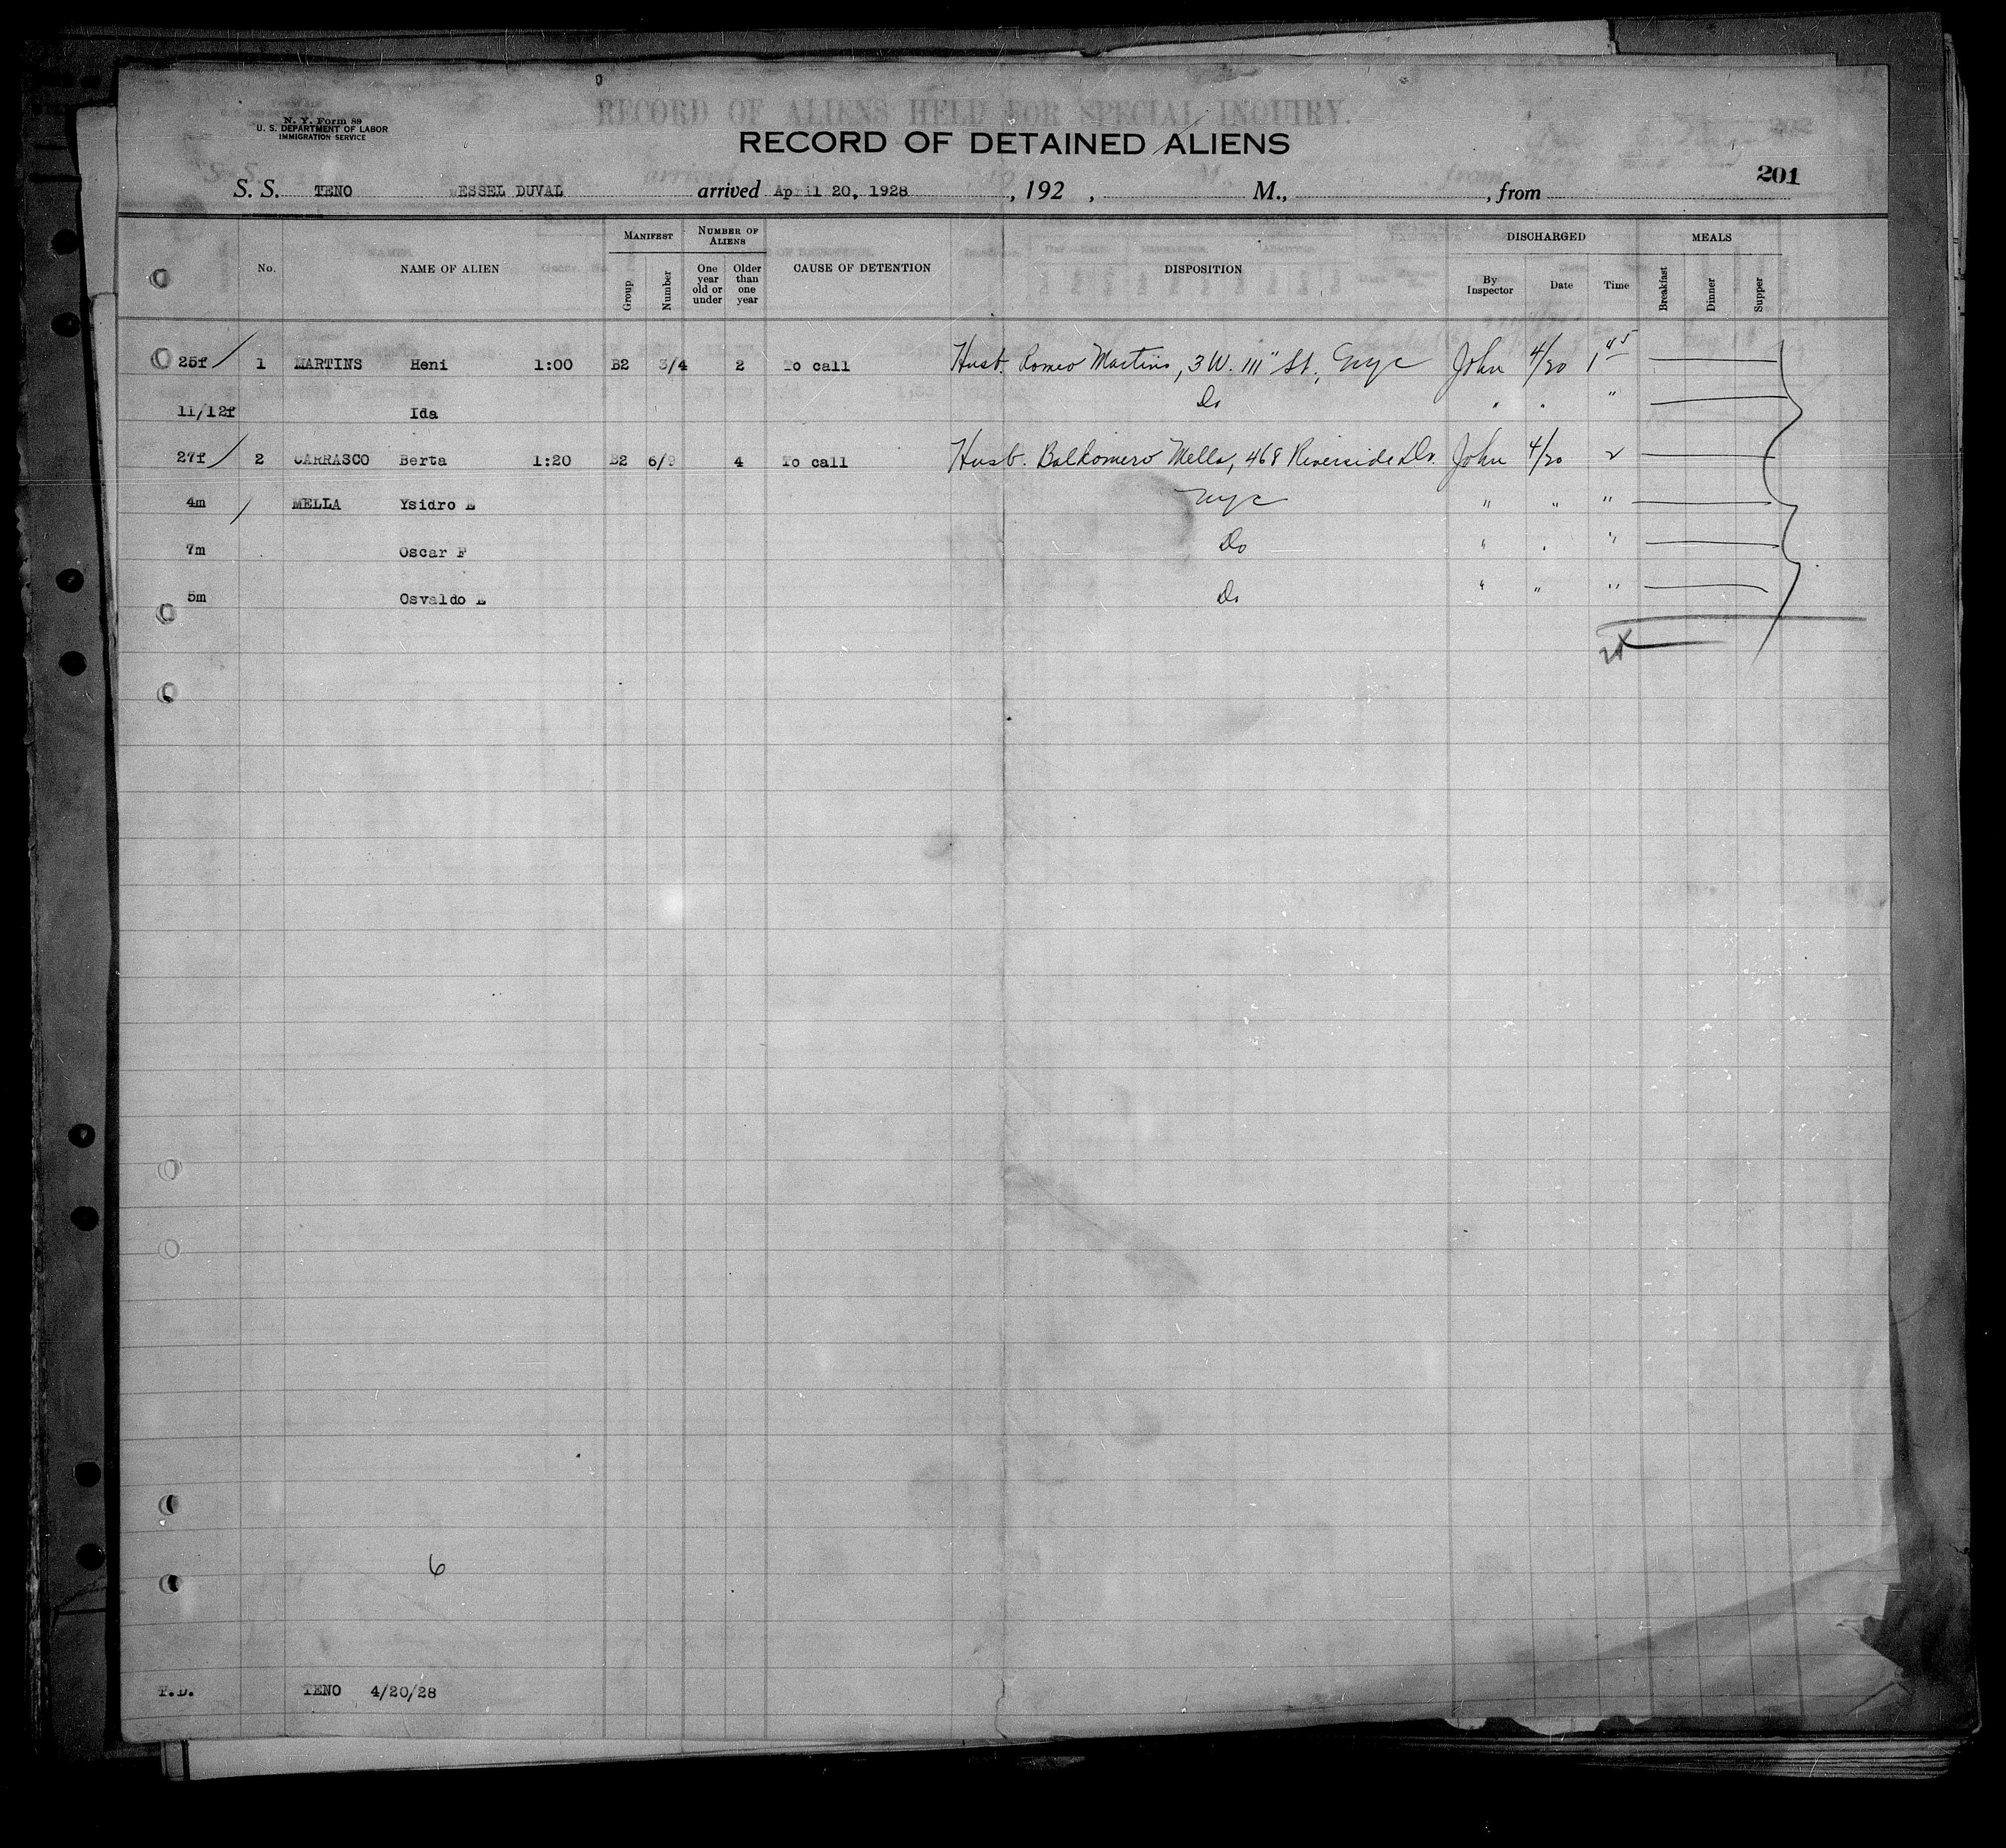 RECORD OF ALIENS HELD FOR SPECIAL INQUIRY.
N. Y. Form 89
U. S. DEPARTMENT OF LABOR
IMMIGRATION SERVICE
RECORD OF DETAINED ALIENS
201
S. S. TENO WESSEL DUVAL arrived April 20, 1928, 192 , M., , from
No. NAME OF ALIEN MANIFEST Group Number NUMBER OF ALIENS One year old or under Older than one year CAUSE OF DETENTION DISPOSITION DISCHARGED By Inspector Date Time MEALS Breakfast Dinner Supper
25f / 1 MARTINS Heni 1:00 B2 3/4 2 To call Husb. Romeo Martins, 3 W. 111" St., NYC John 4/20 1 45
11/12f Ida Do " " "
27f / 2 CARRASCO Berta 1:20 B2 6/9 4 To call Husb. Baldomero Mella, 468 Riverside Dr. John 4/20 2
4m / MELLA Ysidro E NYC " " "
7m Oscar F Do " " "
5m Osvaldo E Do " " "
6
T.D. TENO 4/20/28